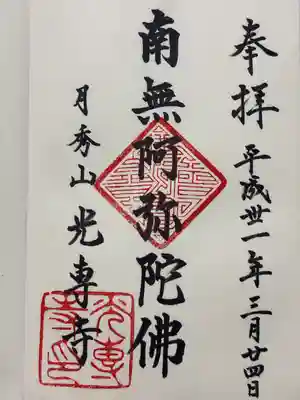 奉拝 平成卅一年三月廿四日
南無阿弥陀佛
月秀山 光専寺
光専寺印